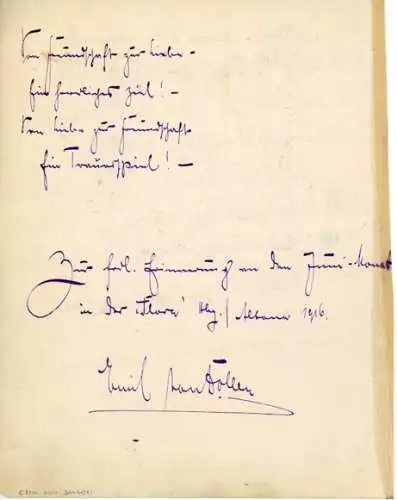 Von Freundschaft zur Liebe –
Ein herrliches Ziel! –
Von Liebe zur Freundschaft
Ein Trauerspiel! –
Zur frdl. Erinnerung an den Juni-Monat
in der "Flora" Hbg./Altona 1916.
Emil van Dollen